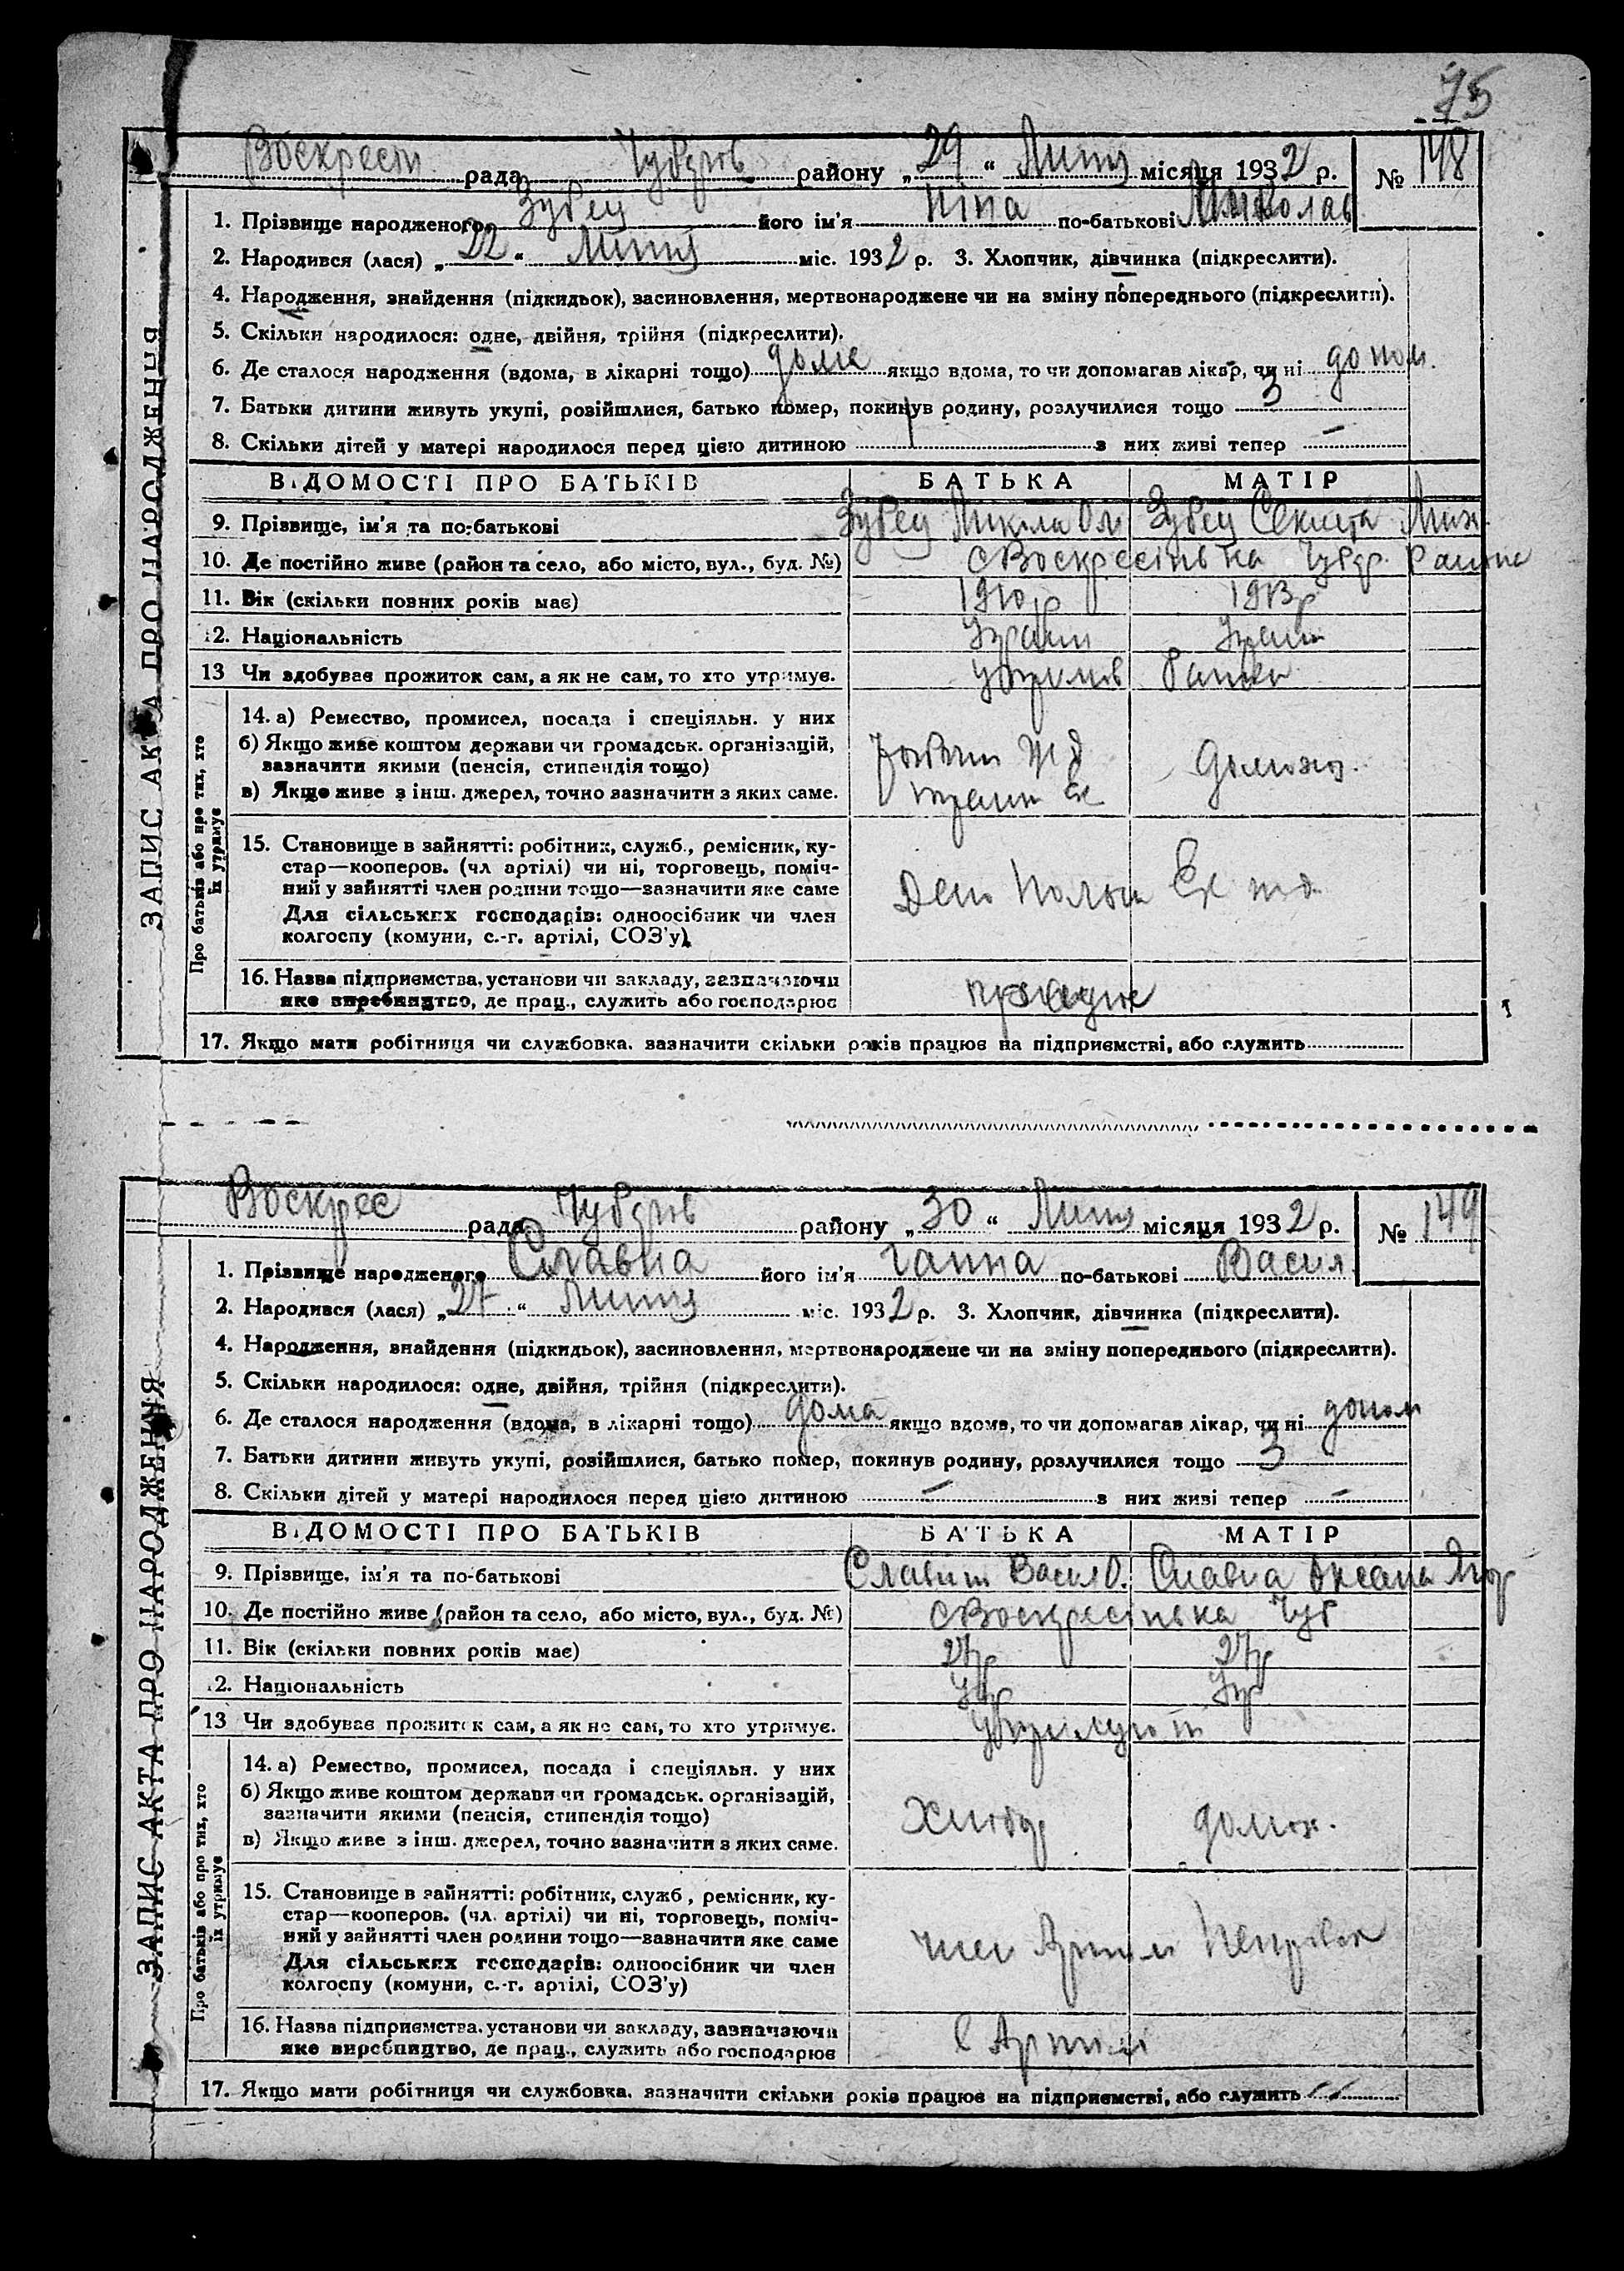 75
Воскресен рада Чубарів району „29“ Липня місяця 1932 р. № 148
1. Прізвище народженого Зубец його ім'я Ніна по-батькові Миколав
2. Народився (лася) „22“ Липня міс. 1932 р. 3. Хлопчик, дівчинка (підкреслити).
4. Народження, знайдення (підкидьок), засиновлення, мертвонароджене чи на зміну попереднього (підкреслити).
5. Скільки народилося: одне, двійня, трійня (підкреслити).
6. Де сталося народження (вдома, в лікарні тощо) дома якщо вдома, то чи допомагав лікар, чи ні допом.
7. Батьки дитини живуть укупі, розійшлися, батько помер, покинув родину, розлучилися тощо 3
8. Скільки дітей у матері народилося перед цією дитиною 1 з них живі тепер –
ВІДОМОСТІ ПРО БАТЬКІВ БАТЬКА МАТІР
9. Прізвище, ім'я та по-батькові Зубец Микола Ол Зубец Секлета Мих.
10. Де постійно живе (район та село, або місто, вул., буд. №) с Воскресінька Чубар. Района
11. Вік (скільки повних років має) 1910р 1913р
12. Національність Украин Украин
13 Чи здобуває прожиток сам, а як не сам, то хто утримує.
14. а) Ремество, промисел, посада і спеціяльн. у них
б) Якщо живе коштом держави чи громадськ. організацій,
зазначити якими (пенсія, стипендія тощо)
в) Якщо живе з інш. джерел, точно зазначити з яких саме. домохоз.
15. Становище в зайнятті: робітник, служб., ремісник, ку-
стар—кооперов. (чл артілі) чи ні, торговець, поміч-
ний у зайнятті член родини тощо—зазначити яке саме
Для сільських господарів: одноосібник чи член
колгоспу (комуни, с.-г. артілі, СОЗ'у).
16. Назва підприємства, установи чи закладу, зазначаючи
яке виробництво, де прац., служить або господарює працює
17. Якщо мати робітниця чи службовка, зазначити скільки років працює на підприємстві, або служить
ЗАПИС АКТА ПРО НАРОДЖЕННЯ
Про батьків або про тих, хто
їх утримує
Воскрес рада Чубарів району „30“ Липня місяця 1932 р. № 149
1. Прізвище народженого Славна його ім'я Ганна по-батькові Васил.
2. Народився (лася) „27“ Липня міс. 1932 р. 3. Хлопчик, дівчинка (підкреслити).
4. Народження, знайдення (підкидьок), засиновлення, мертвонароджене чи на зміну попереднього (підкреслити).
5. Скільки народилося: одне, двійня, трійня (підкреслити).
6. Де сталося народження (вдома, в лікарні тощо) дома якщо вдома, то чи допомагав лікар, чи ні допом
7. Батьки дитини живуть укупі, розійшлися, батько помер, покинув родину, розлучилися тощо 3
8. Скільки дітей у матері народилося перед цією дитиною – з них живі тепер –
ВІДОМОСТІ ПРО БАТЬКІВ БАТЬКА МАТІР
9. Прізвище, ім'я та по-батькові Васил О. Славна Оксана
10. Де постійно живе (район та село, або місто, вул., буд. №) с Воскресінька Чуб
11. Вік (скільки повних років має) 27р 27р
12. Національність Укр Укр
13 Чи здобуває прожиток сам, а як не сам, то хто утримує. утримують
14. а) Ремество, промисел, посада і спеціяльн. у них
б) Якщо живе коштом держави чи громадськ. організацій,
зазначити якими (пенсія, стипендія тощо)
в) Якщо живе з інш. джерел, точно зазначити з яких саме. Хлібор домох.
15. Становище в зайнятті: робітник, служб., ремісник, ку-
стар—кооперов. (чл. артілі) чи ні, торговець, поміч-
ний у зайнятті член родини тощо—зазначити яке саме
Для сільських господарів: одноосібник чи член
колгоспу (комуни, с.-г. артілі, СОЗ'у) член Артили
16. Назва підприємства, установи чи закладу, зазначаючи
яке виробництво, де прац., служить або господарює в Артили
17. Якщо мати робітниця чи службовка, зазначити скільки років працює на підприємстві, або служить
ЗАПИС АКТА ПРО НАРОДЖЕННЯ
Про батьків або про тих, хто
їх утримує